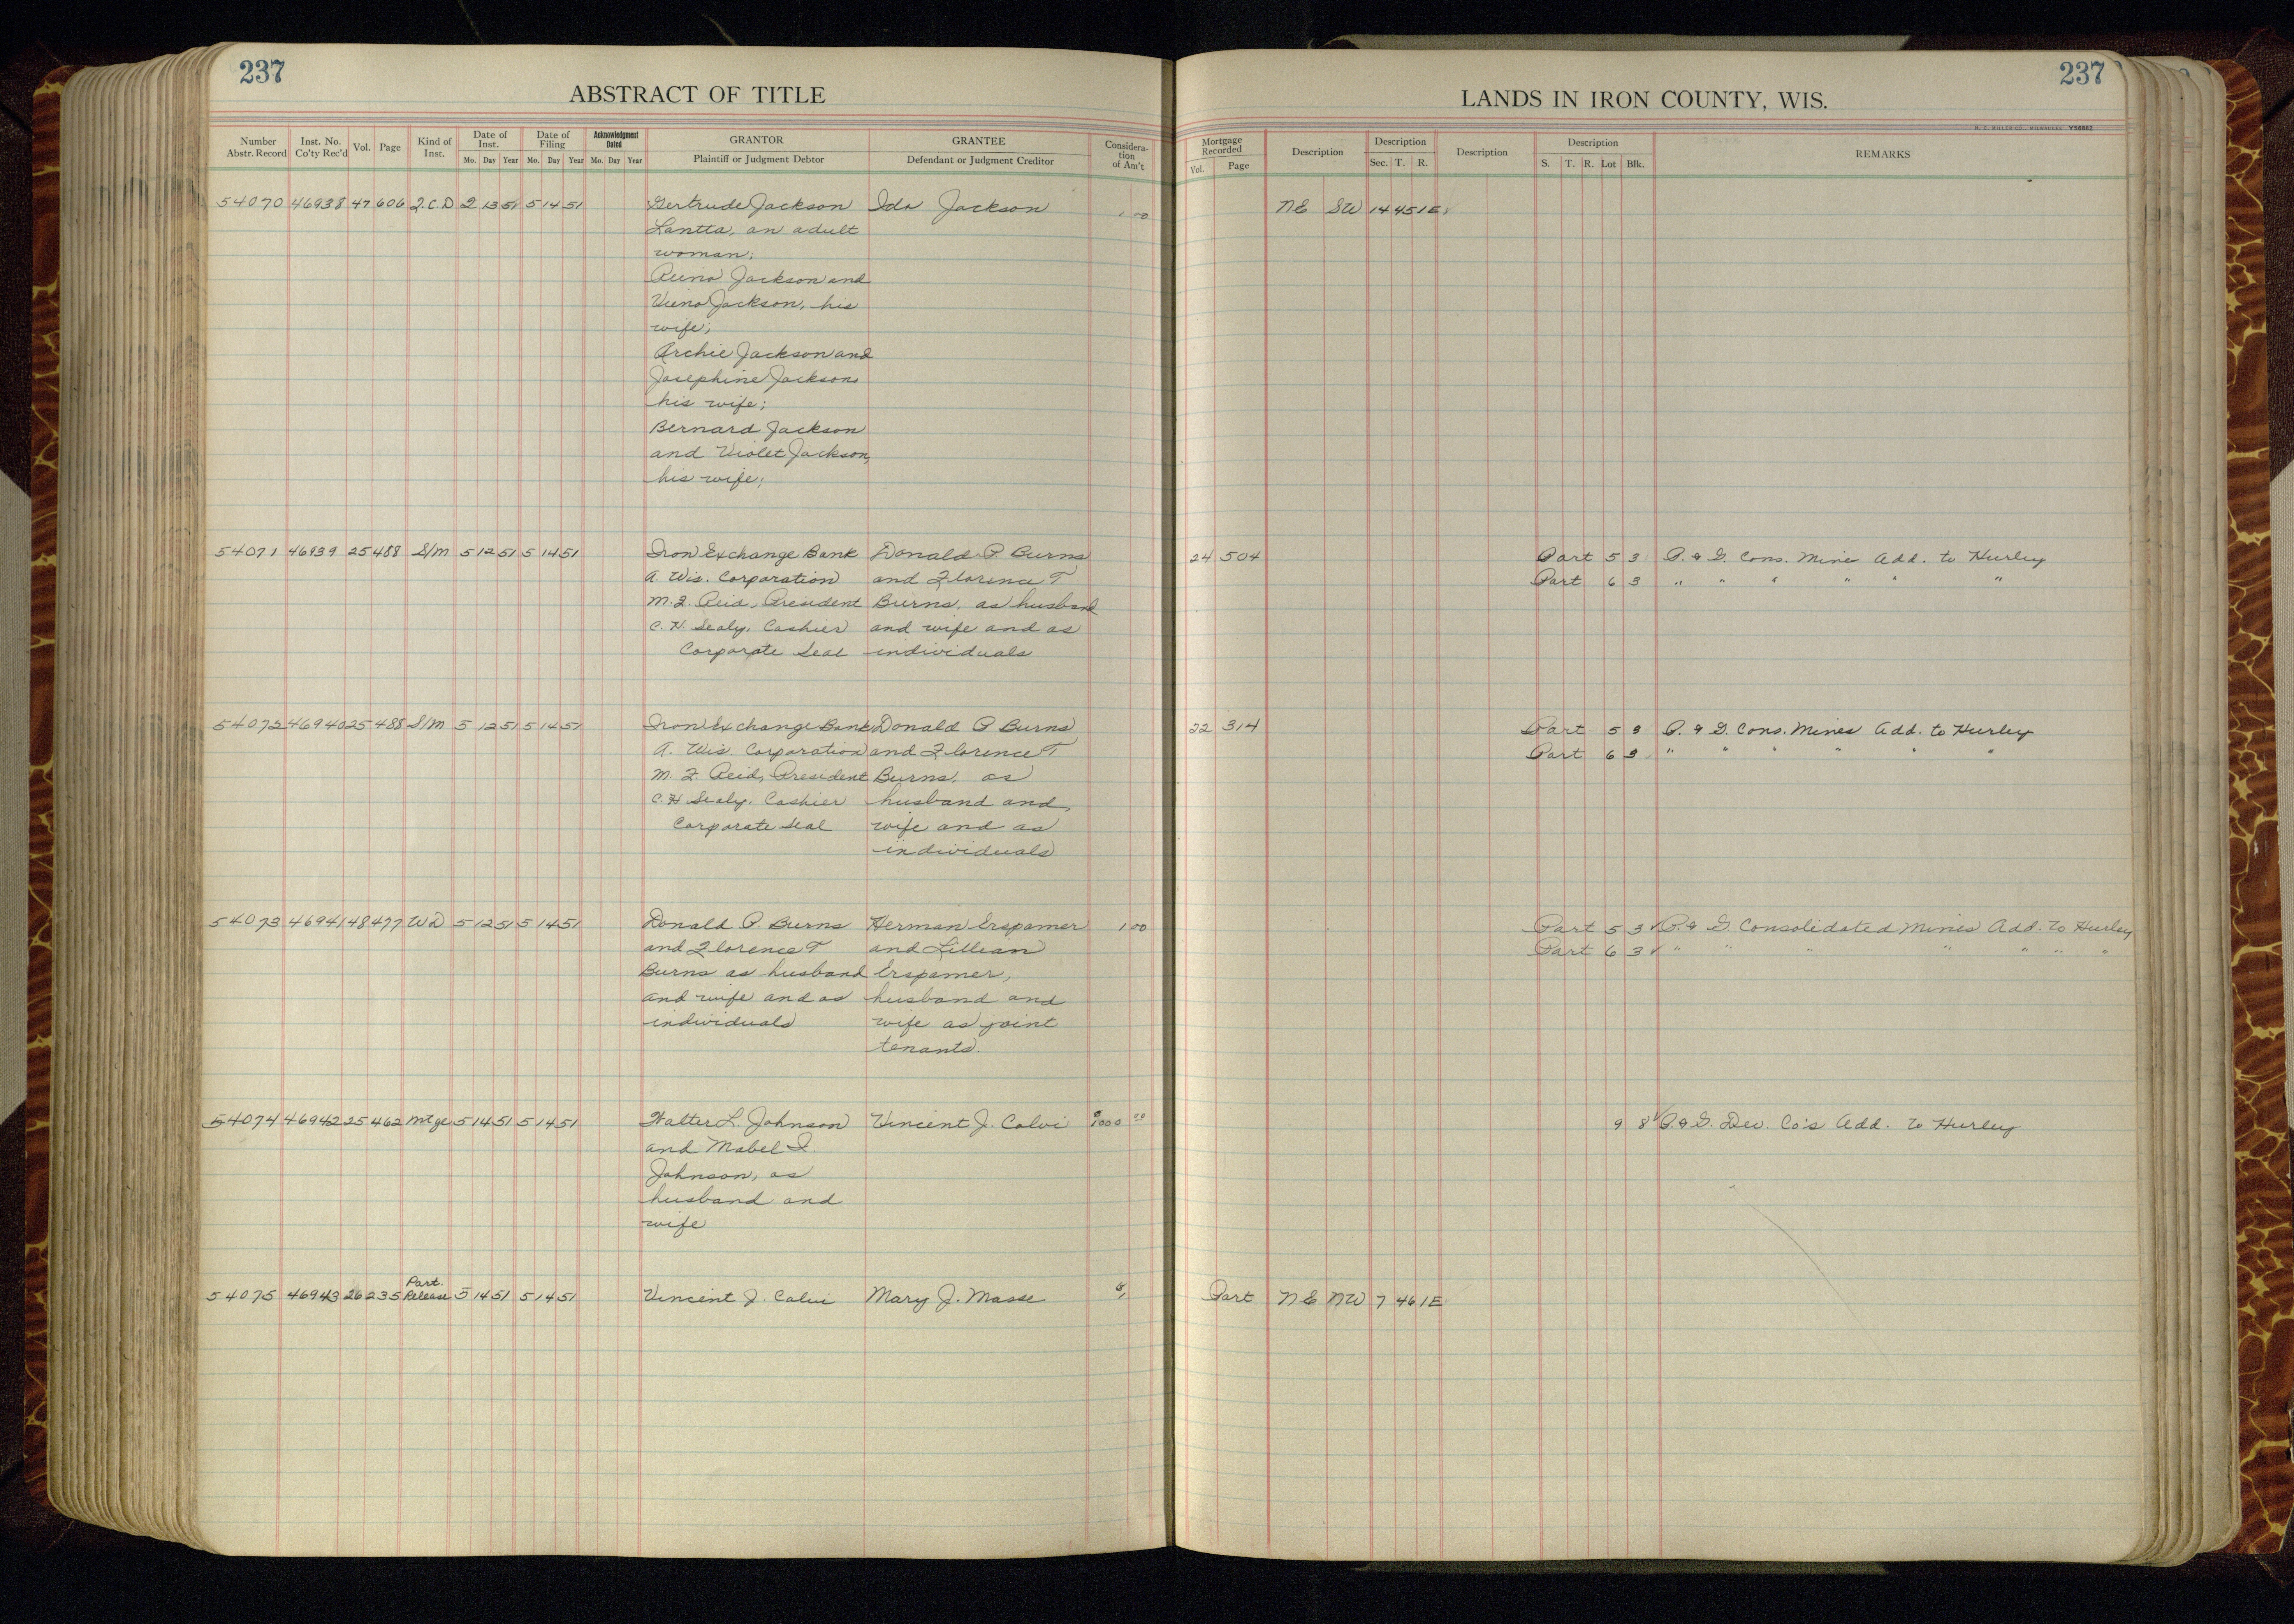 237
ABSTRACT OF TITLE
Number Abstr. Record Inst. No. Co'ty Rec'd Vol. Page Kind of Inst. Date of Inst. Mo. Day Year Date of Filing Mo. Day Year Acknowledgment Dated Mo. Day Year GRANTOR Plaintiff or Judgment Debtor GRANTEE Defendant or Judgment Creditor Considera-tion of Am't
237
LANDS IN IRON COUNTY, WIS.
Mortgage Recorded Vol. Page Description Description Sec. T. R. Description Description S. T. R. Lot Blk. REMARKS
54070 46938 47 606 Q.C.D 2 13 51 5 14 51 Gertrude Jackson Ida Jackson 1 00 NE SW 14 45 1E
Lantta, an adult
woman;
Reino Jackson and
Vieno Jackson, his
wife;
Archie Jackson and
Josephine Jackson,
his wife;
Bernard Jackson
and Violet Jackson,
his wife;
54071 46939 25 488 S/M 5 12 51 5 14 51 Iron Exchange Bank Donald P. Burns 24 504 Part 5 3 P. & G. Cons. Mine Add. to Hurley
A. Wis. Corporation and Florence T Part 6 3 " " " " " "
M.F. Reid, President Burns, as husband
C.H. Sealy, Cashier and wife and as
Corporate Seal individuals
54072 46940 25 488 S/M 5 12 51 5 14 51 Iron Exchange Bank Donald P Burns 22 314 Part 5 3 P. & G. Cons. Mines Add. to Hurley
A. Wis Corporation and Florence T Part 6 3 " " " " " "
M.F. Reid, President Burns, as
C.H Sealy, Cashier husband and
Corporate Seal wife and as
individuals
54073 46941 48 477 WD 5 12 51 5 14 51 Donald P. Burns Herman Erspamer 1 00 Part 5 3 P. & G. Consolidated Mines Add. to Hurley
and Florence T and Lillian Part 6 3 " " " " " " "
Burns as husband Erspamer,
and wife and as husband and
individuals wife as joint
tenants.
54074 46942 25 462 Mtge 5 14 51 5 14 51 Walter L. Johnson Vincent J. Calvi 1000 00 9 8 P. & G. Dev. Co's Add. to Hurley
and Mabel I.
Johnson, as
husband and
wife
54075 46943 26 235 Part. Release 5 14 51 5 14 51 Vincent J. Calvi Mary J. Masse Part NE NW 7 46 1E